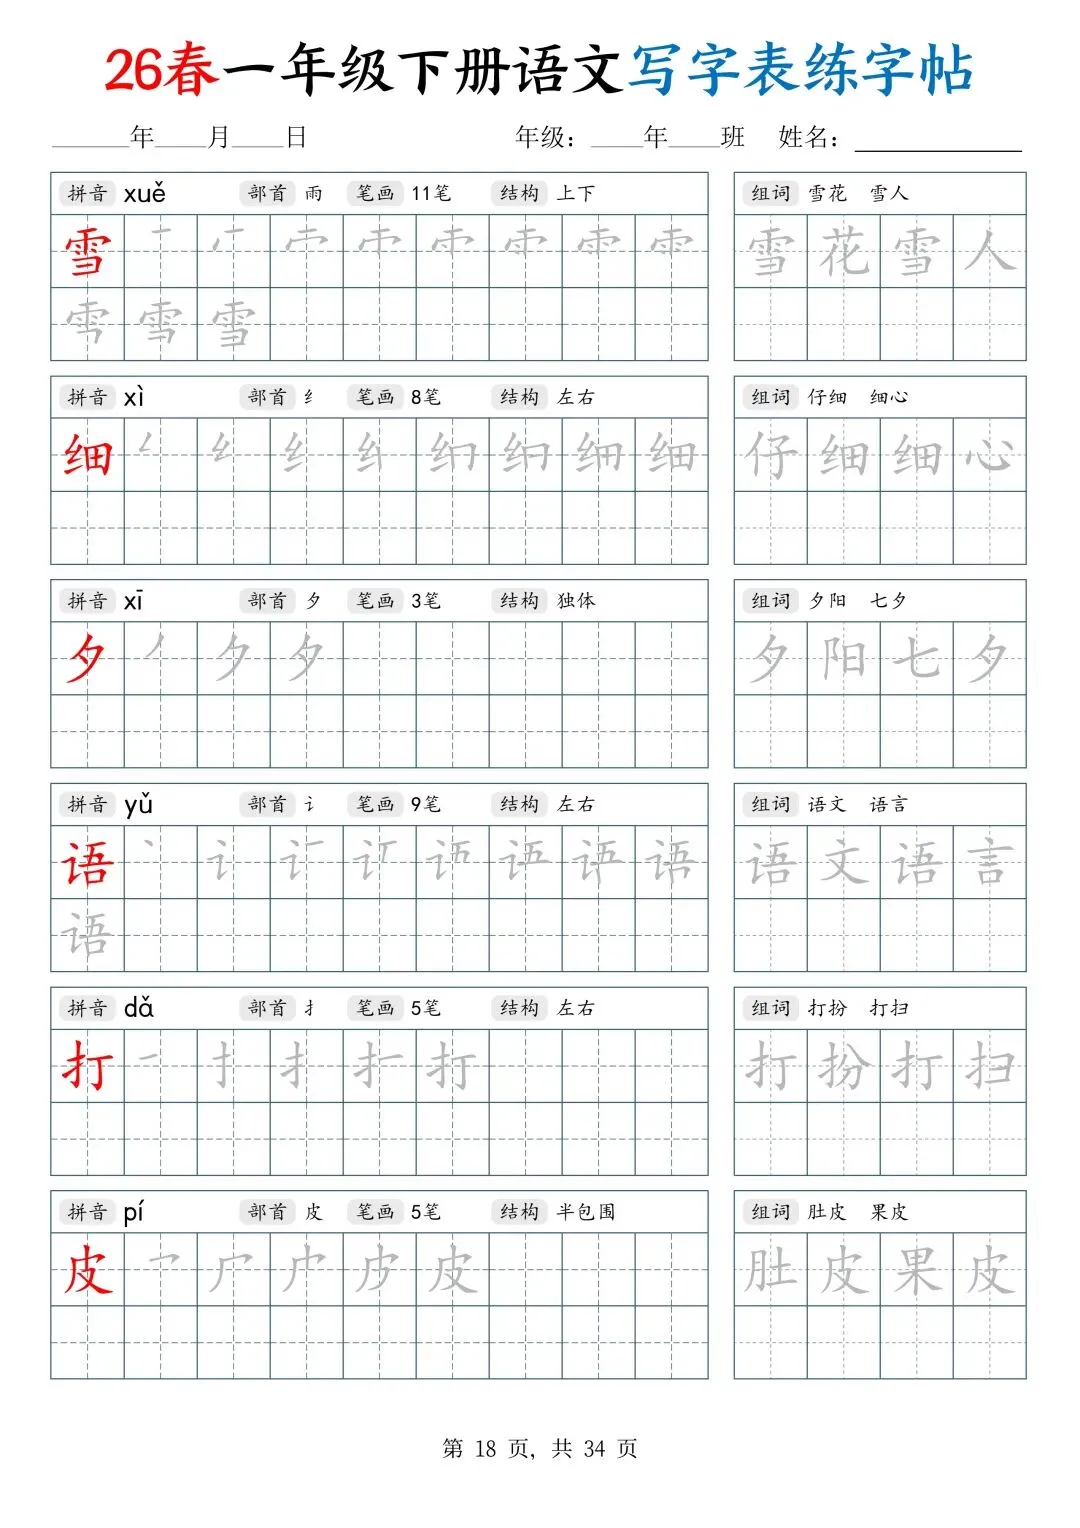 26春一年级下册语文写字表练字帖
______年____月____日 年级：____年____班 姓名：____________
拼音 xuě 部首 雨 笔画 11笔 结构 上下 组词 雪花 雪人
雪 雪 花 雪 人
雪
拼音 xì 部首 纟 笔画 8笔 结构 左右 组词 仔细 细心
细 纟 细 仔 细 细 心
拼音 xī 部首 夕 笔画 3笔 结构 独体 组词 夕阳 七夕
夕 夕 夕 阳 七 夕
拼音 yǔ 部首 讠 笔画 9笔 结构 左右 组词 语文 语言
语 讠 语 文 语 言
语
拼音 dǎ 部首 扌 笔画 5笔 结构 左右 组词 打扮 打扫
打 扌 打 打 扮 打 扫
拼音 pí 部首 皮 笔画 5笔 结构 半包围 组词 肚皮 果皮
皮 皮 肚 皮 果 皮
第 18 页，共 34 页